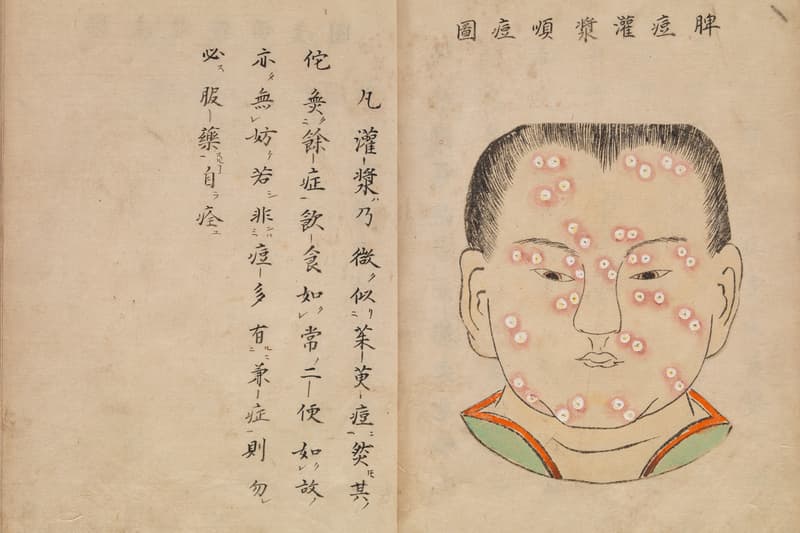 脾痘灌漿順痘圖
凡灌漿乃微似茱萸痘然其
佗餘症飲食如常二便如故
亦無妨若非痘多有兼症則勿
必服藥自痊